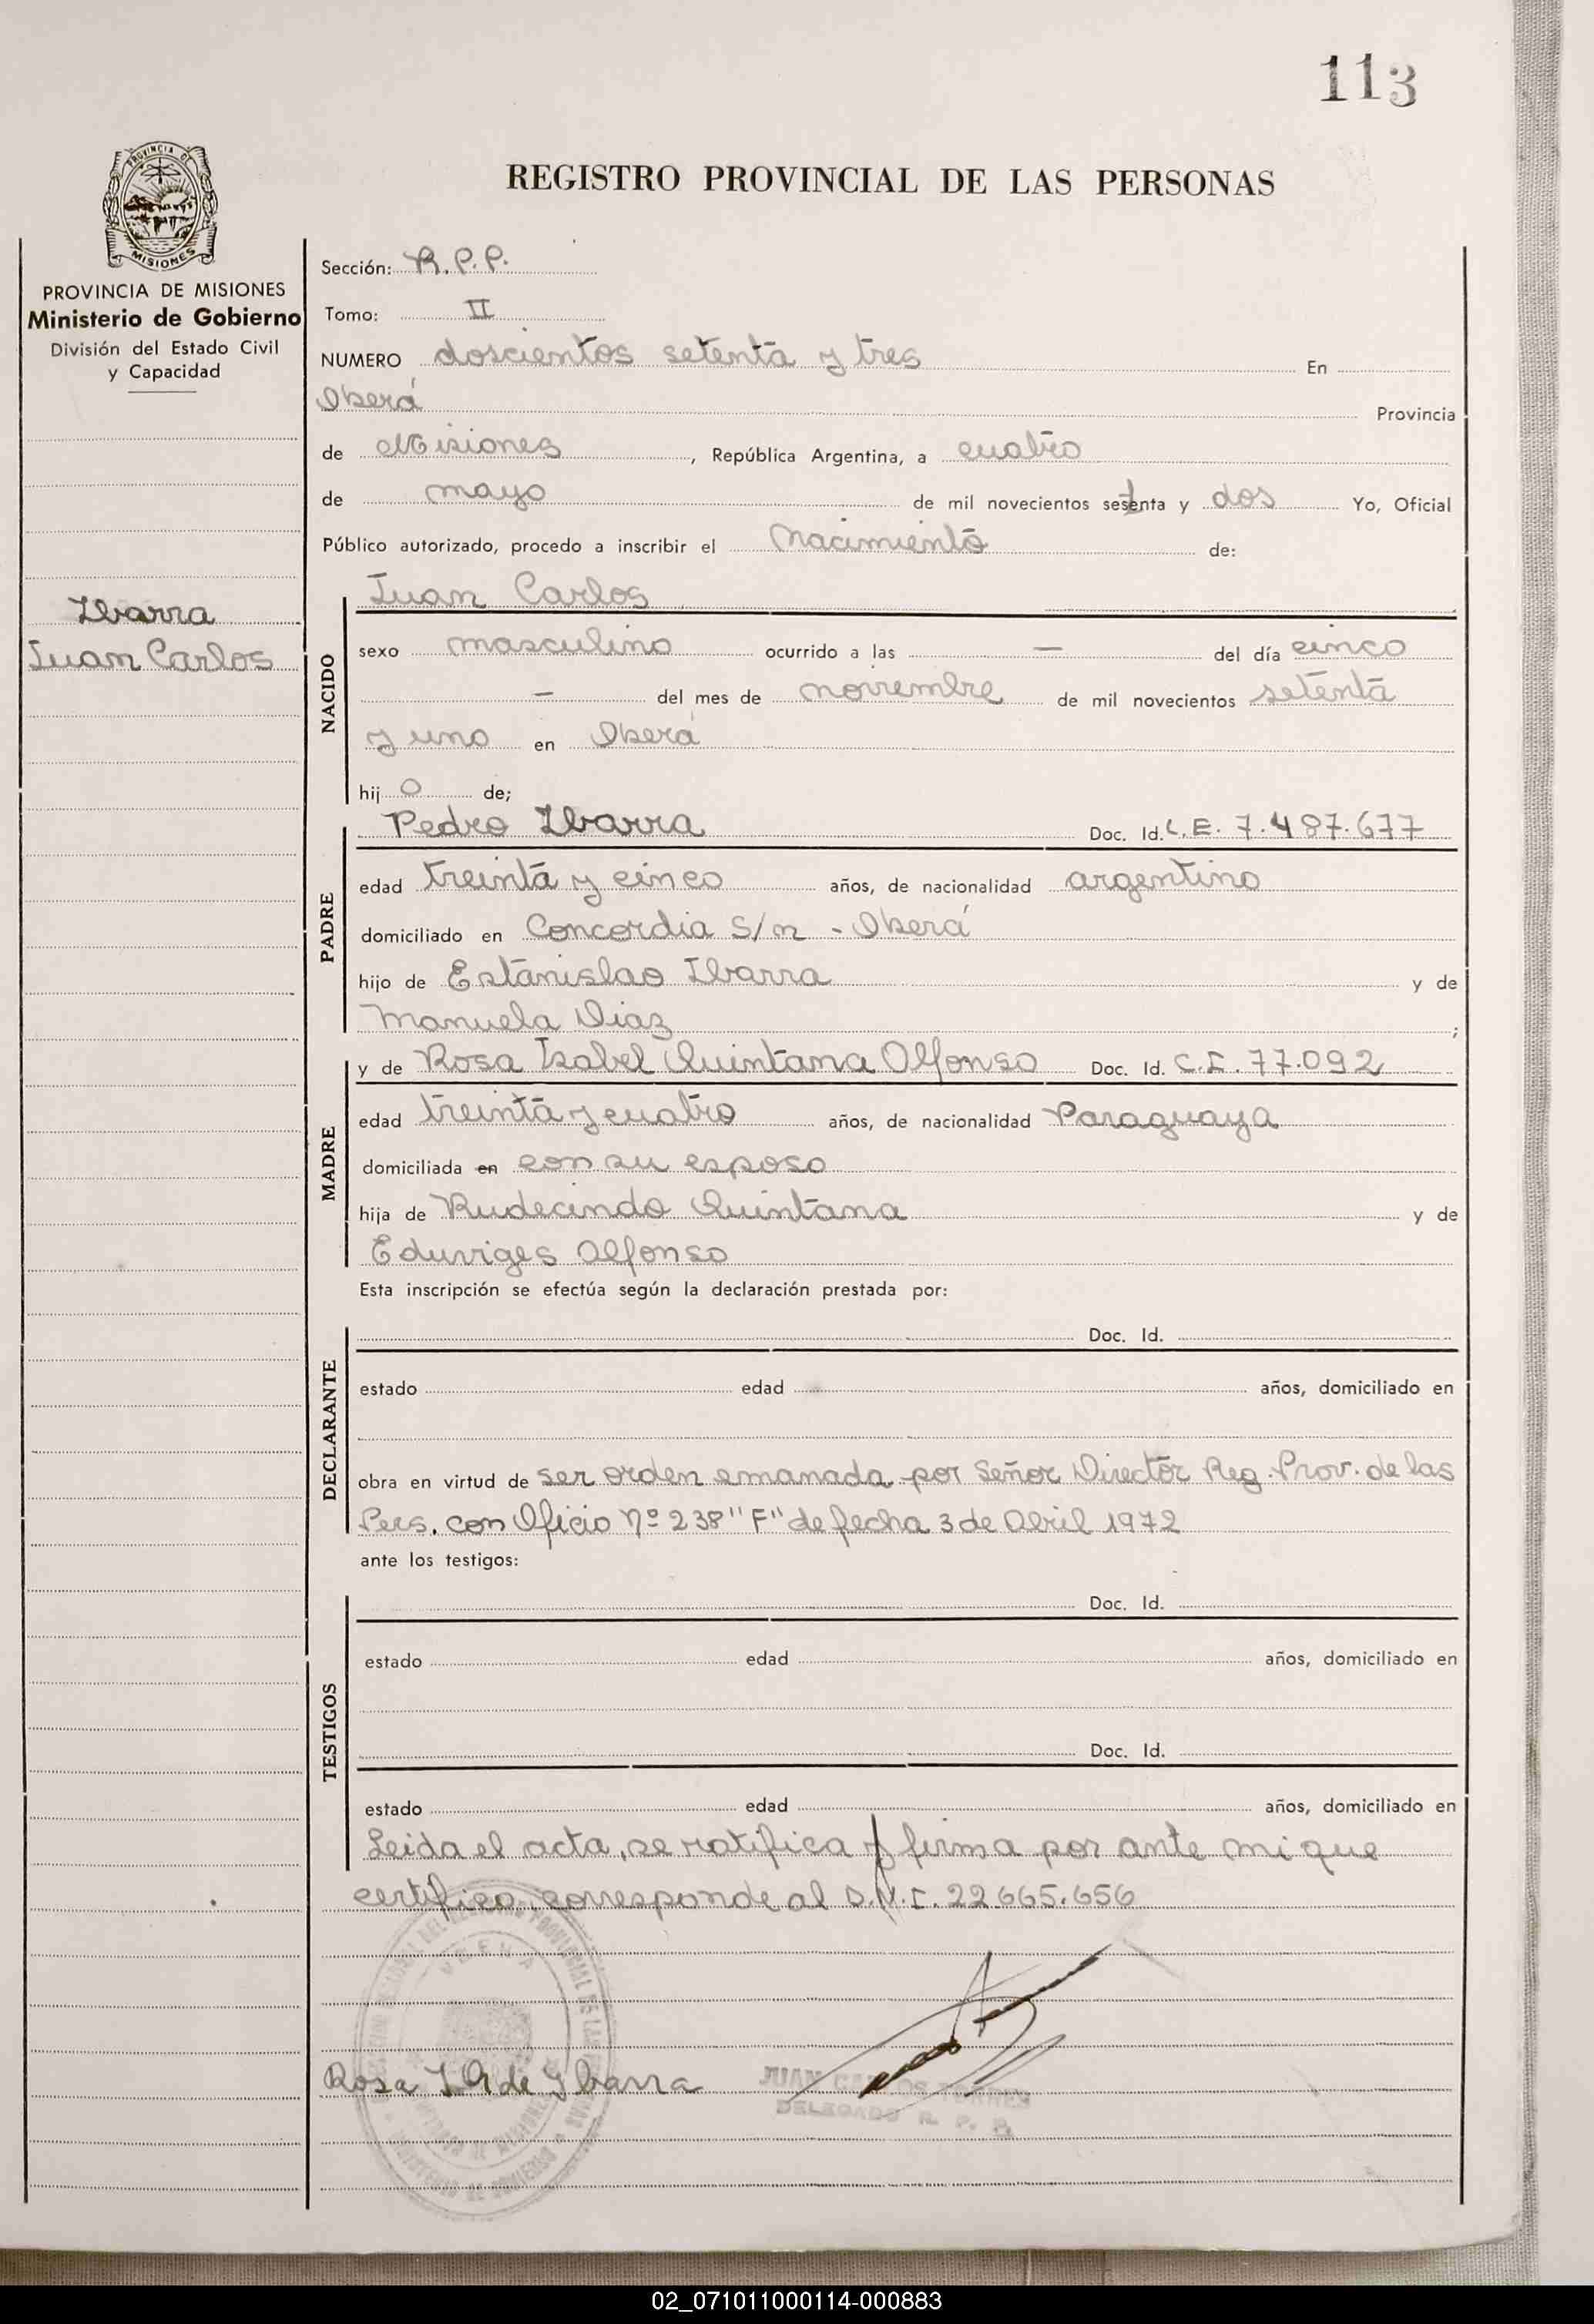 113
PROVINCIA DE
MISIONES
REGISTRO PROVINCIAL DE LAS PERSONAS
PROVINCIA DE MISIONES
Ministerio de Gobierno
División del Estado Civil
y Capacidad
Ibarra
Juan Carlos
Sección: R.P.P.
Tomo: II
NUMERO doscientos setenta y tres En
Oberá Provincia
de Misiones, República Argentina, a cuatro
de mayo de mil novecientos setenta y dos Yo, Oficial
Público autorizado, procedo a inscribir el nacimiento de:
NACIDO
Juan Carlos
sexo masculino ocurrido a las — del día cinco
— del mes de noviembre de mil novecientos setenta
y uno en Oberá
hijo de;
PADRE
Pedro Ibarra Doc. Id. L.E. 7.487.677
edad treinta y cinco años, de nacionalidad argentino
domiciliado en Concordia S/n - Oberá
hijo de Estanislao Ibarra y de
Manuela Diaz ;
MADRE
y de Rosa Isabel Quintana Alfonso Doc. Id. C.I. 77.092
edad treinta y cuatro años, de nacionalidad Paraguaya
domiciliada en con su esposo
hija de Rudecindo Quintana y de
Eduviges Alfonso
Esta inscripción se efectúa según la declaración prestada por:
DECLARANTE
Doc. Id.
estado edad años, domiciliado en
obra en virtud de ser orden emanada por Señor Director Reg. Prov. de las
Pers. con Oficio Nº 238 "F" de fecha 3 de Abril 1972
ante los testigos:
TESTIGOS
Doc. Id.
estado edad años, domiciliado en
Doc. Id.
estado edad años, domiciliado en
Leida el acta, se ratifica y firma por ante mi que
certifico, corresponde al D.N.I. 22.665.656
Rosa I Q de Ybarra
JUAN CARLOS TORRES
DELEGADO R. P. P.
02_071011000114-000883